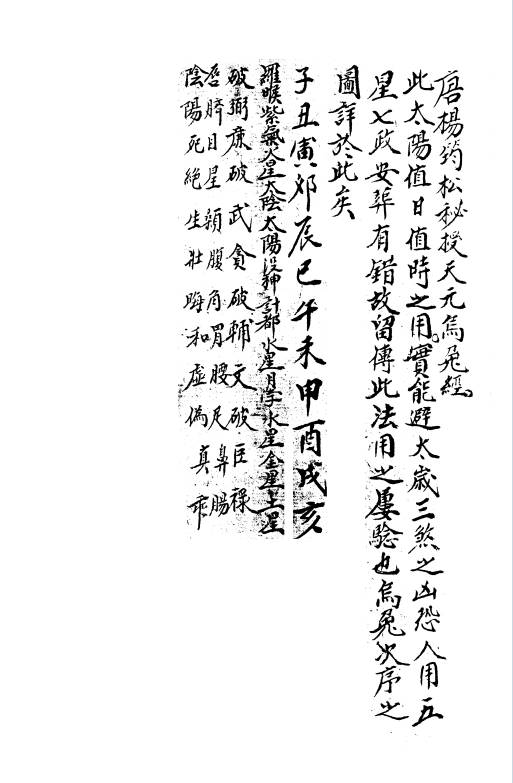 唐楊筠松秘授天元烏兔經
此太陽值日值時之用實能避太歲三煞之凶恐人用五
星七政安葬有錯故留傳此法用之屢驗也烏兔次序之
圖詳於此矣
子丑寅卯辰巳午未申酉戌亥
羅睺紫氣火星太陰太陽沒神計都水星月孛水星金星土星
破弼廉破武貪破輔文破巨祿
唇臍目星顙腹角胃腰足鼻腸
陰陽死絕生壯晦和虛偽真乖